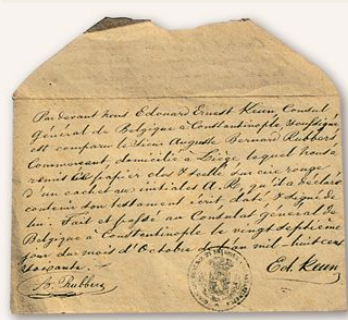 Par devant nous Edouard Ernest Keun, Consul
Général de Belgique à Constantinople, soussigné
est comparu le Sieur Auguste Bernard Rubbers
Commerçant, domicilié à Liège, lequel nous a
remis ce papier clos & scellé sur cire rouge
d'un cachet aux initiales A. R. qu'il a déclaré
contenir son testament écrit, daté & signé de
lui. Fait et passé au Consulat général de
Belgique à Constantinople le vingt septième
jour du mois d'Octobre de l'an mil-huit cent
soixante.
Ed. Keun
Rubbers